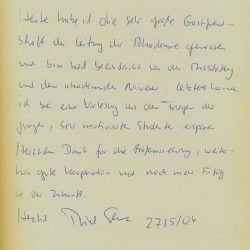 Heute habe ich die sehr große Gastfreund-
schaft der Leitung der Akademie genossen
und bin tief beeindruckt von der Ausstattung
und dem akademischen Niveau. Letzteres konnte
ich bei einer Vorlesung an den Fragen der
jungen, sehr motivierten Studenten
Herzlichen Dank für die weiter-
hin gute Kooperation und noch mehr Erfolg
in der Zukunft.
27/5/04